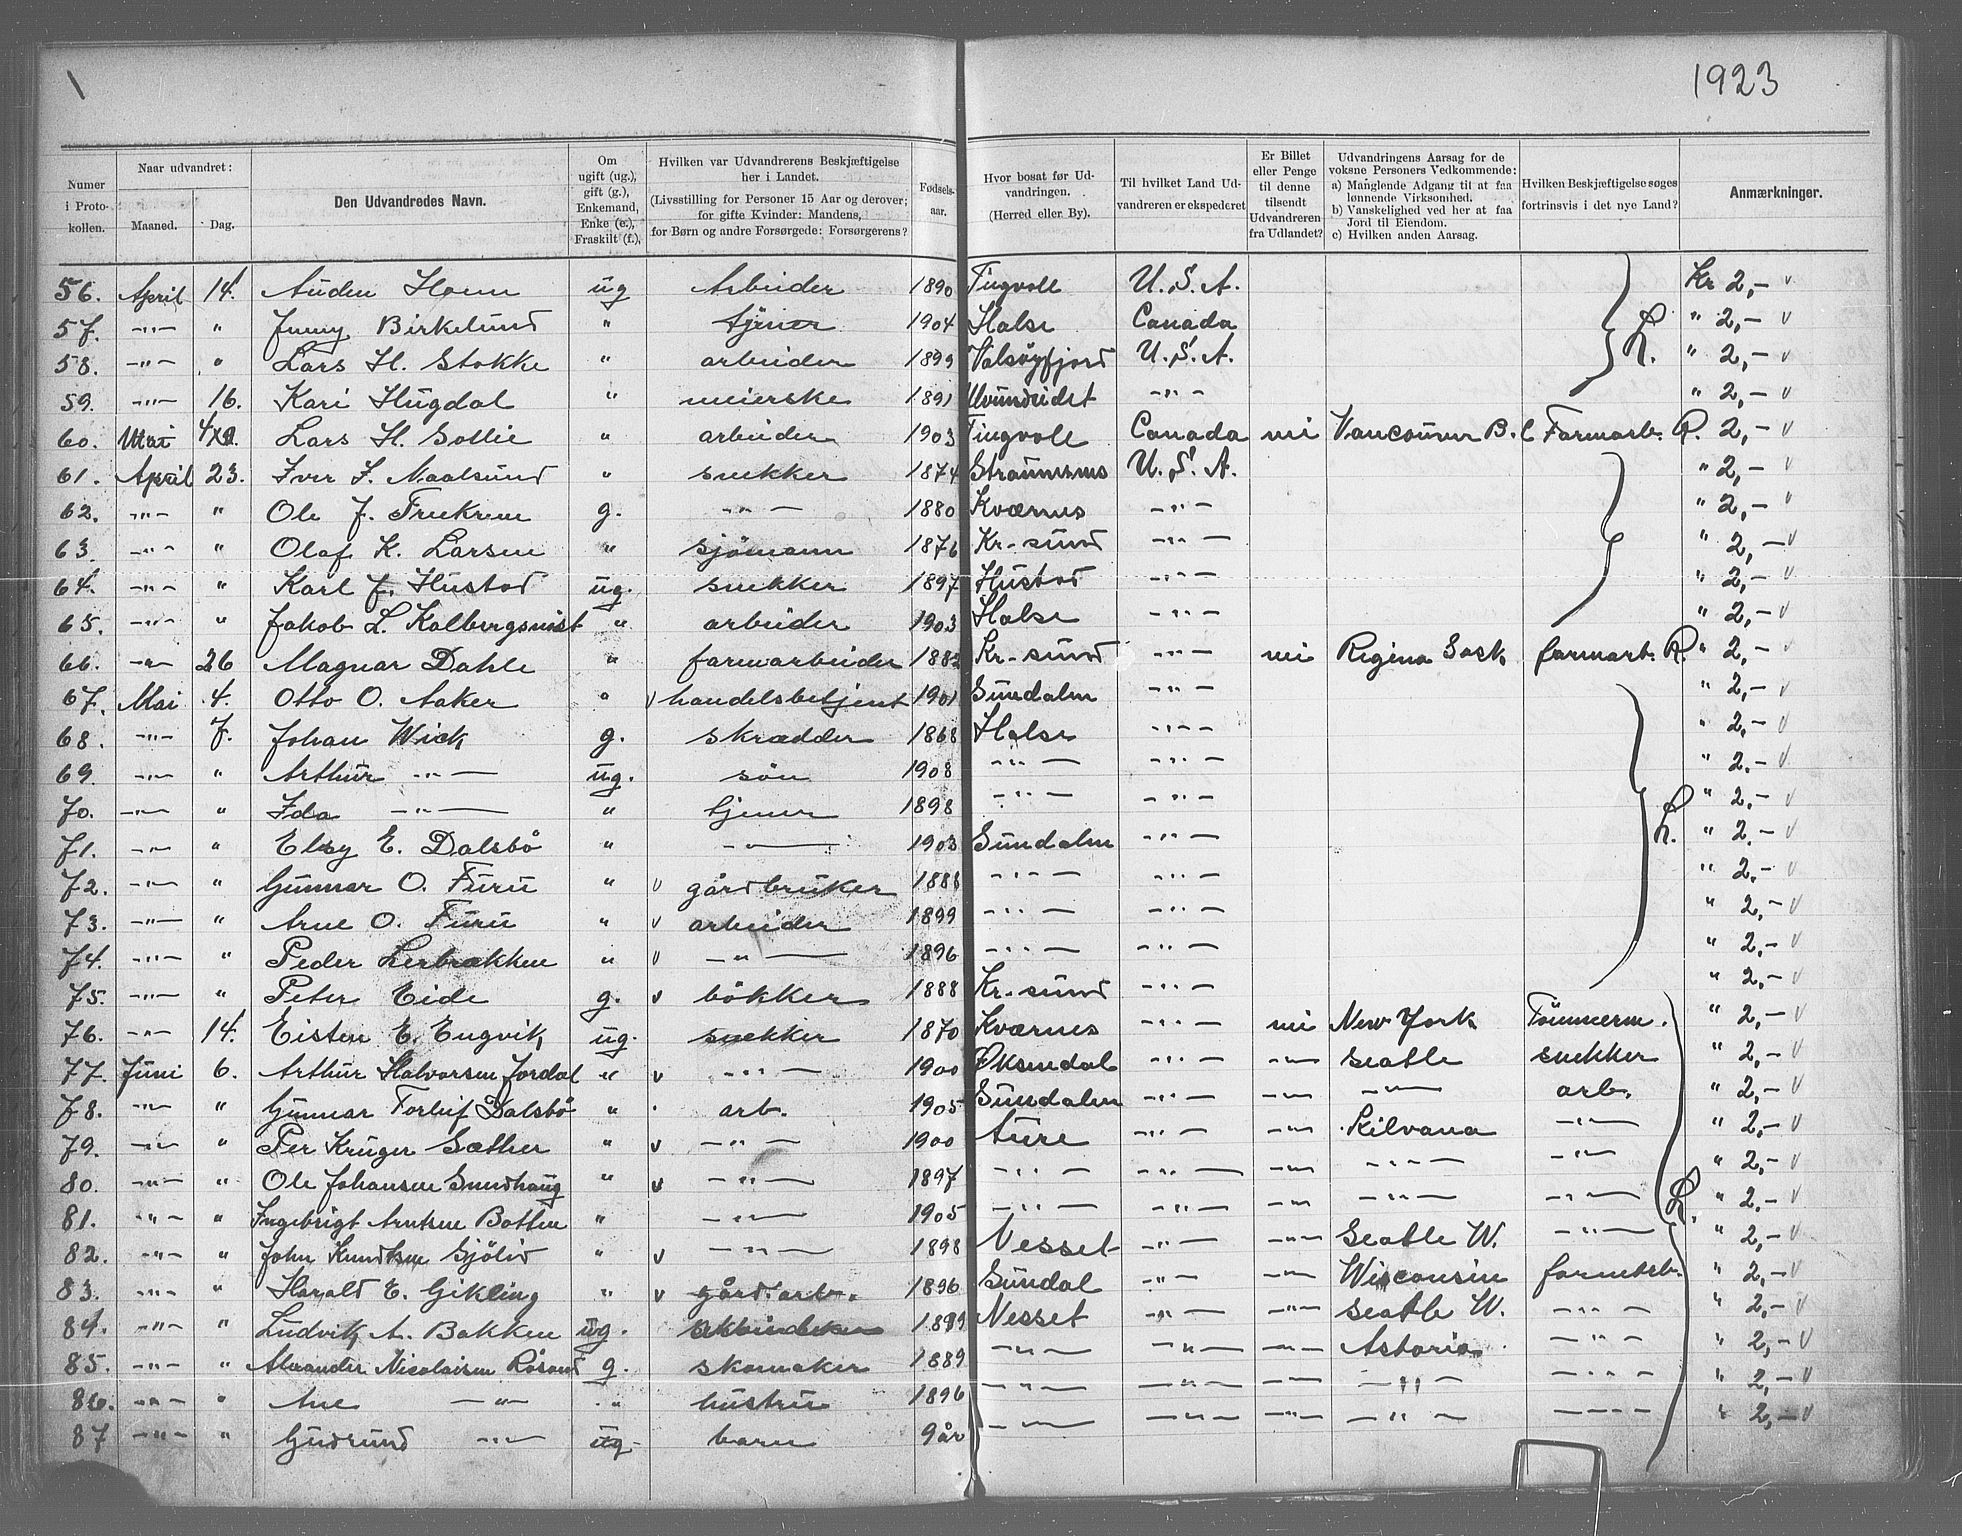 1923
Numer i Proto-kollen. | Naar udvandret: Maaned. Dag. | Den Udvandredes Navn. | Om ugift (ug.), gift (g.), Enkemand, Enke (e.), Fraskilt (f.), | Hvilken var Udvandrerens Beskjæftigelse her i Landet. (Livsstilling for Personer 15 Aar og derover; for gifte Kvinder: Mandens, for Børn og andre Forsørgede: Forsørgerens? | Fødsels-aar. | Hvor bosat før Ud-vandringen. (Herred eller By). | Til hvilket Land Ud-vandreren er ekspederet | Er Billet eller Penge til denne tilsendt Udvandreren fra Udlandet? | Udvandringens Aarsag for de voksne Personers Vedkommende: a) Manglende Adgang til at faa lønnende Virksomhed. b) Vanskelighed ved her at faa Jord til Eiendom. c) Hvilken anden Aarsag. | Hvilken Beskjæftigelse søges fortrinsvis i det nye Land? | Anmærkninger.
56. April 14. Auden Hoem ug Arbeider 1890 Tingvoll U.S.A. Kr 2,- v
57. -"- " Jenny Birkelund " tjener 1904 Halse Canada " 2,- v
58. -"- " Lars H. Stokke " arbeider 1899 Valsøyfjord U.S.A. L. " 2,- v
59. -"- 16. Kari Hugdal " meierske 1891 -"- " 2,- v
60. Mai Lars H. Sollie " arbeider 1903 Tingvoll Canada nei Vancouver B.C Farmarb. R. 2,- v
61. April 23. Iver I. Maalsund " snekker 1874 Straumsnes U.S.A. " 2,- v
62. -"- " Ole J. g. -"- 1880 Kværnes -"- " 2,- v
63. -"- " Olaf K. Larsen " sjömann 1876 Kr.-sund -"- " 2,- v
64. -"- " Karl J. Hustad ug. snekker 1897 Hustad -"- " 2,- v
65. -"- " Jakob L. Kalbergsvist " arbeider 1903 Halse -"- " 2,- v
66. -"- 26 Magnar Dahle " farmarbeider 1882 Kr.-sund -"- nei Regina Sask farmarb. R. " 2,- v
67. Mai 4. Otto O. Aaker " v handelsbetjent 1901 Sundalen -"- " 2,- v
68. -"- 7. Johan Wick g. skrædder 1868 Halse -"- " 2,- v
69 -"- " Arthur -"- ug. sön 1908 -"- -"- " 2.- v
70. -"- " Ida -"- " tjener 1898 -"- -"- " 2,- v
71. -"- " Elsy E. Dalsbö " -"- 1903 Sundalen -"- L. " 2.- v
72. -"- " Gunnar O. Furu " v gårdbruker 1888 -"- -"- " 2,- v
73. -"- " Arne O. Furu " v arbeider 1899 -"- -"- " 2,- v
74. -"- " Peder Lerbrækken " v -"- 1896 -"- -"- " 2,- v
75. -"- " Peter Eide g. v bökker 1888 Kr.-sund -"- " 2,- v
76. -"- 14. Eisten E. Engvik ug. snekker 1870 Kværnes -"- nei New York Tömmerm. " 2,- v
77. Juni 6. Arthur Halvorsen Jordal " v -"- 1900 Øksendal -"- -"- Seatle snekker " 2,- v
78. -"- " Gunnar Torleif Dalsbö " . arb. 1905 Sundalen -"- -"- -"- arb. " 2,- v
79. -"- " Per Krüger Sæther " v -"- 1900 Aure -"- -"- Kilvana -"- " 2,- v
80. -"- " Ole Johansen " v -"- 1897 -"- -"- -"- -"- -"- " 2,- v
81. -"- " Ingebrigt Arntsen Botten " -"- 1905 -"- -"- -"- -"- -"- R. " 2,- v
82. -"- " John Knudsen Gjölid " v -"- 1898 Nesset -"- -"- Seatle W. -"- " 2,- v
83. -"- " Harald E. Gikling " v gård.arb. 1896 Sundal -"- -"- Wisconsin farmarb. " 2,- v
84. -"- " Ludvik A. Bakken ug. 1899 Nesset -"- -"- Seatle W. -"- " 2,- v
85. -"- " Alexander Nicolaisen Rösand g. skomaker 1889 -"- -"- -"- Astoria -"- " 2,- v
86. -"- " Ane -"- " hustru 1896 -"- -"- -"- -"- -"- " 2,- v
87 -"- " Gudrund -"- ug. barn 9år -"- -"- -"- -"- -"- " 2,- v